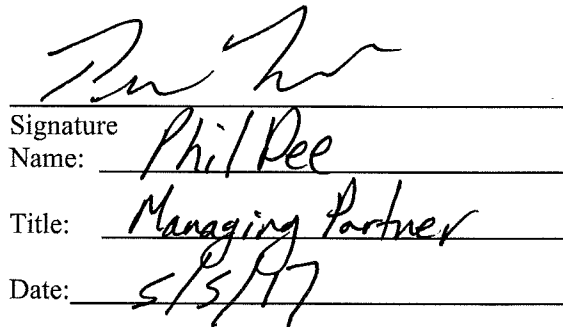 Signature
Name: Phil Dee
Title: Managing Partner
Date: 5/5/17